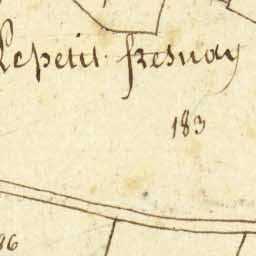 Le petit fresnay
183
86